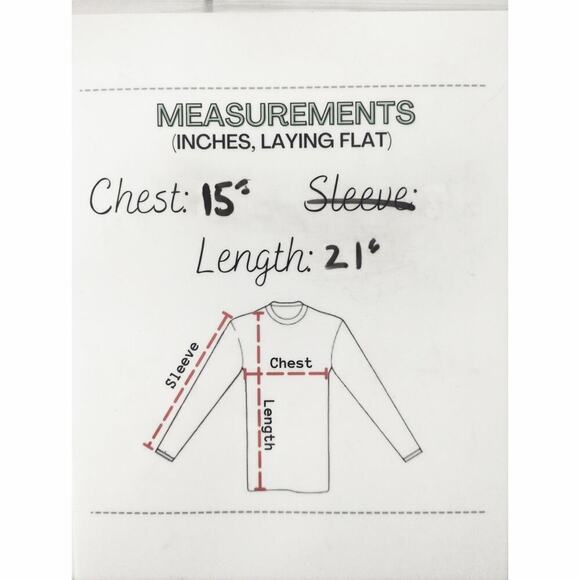 MEASUREMENTS
(INCHES, LAYING FLAT)
Chest: 15" Sleeve:
Length: 21"
Sleeve
Chest
Length